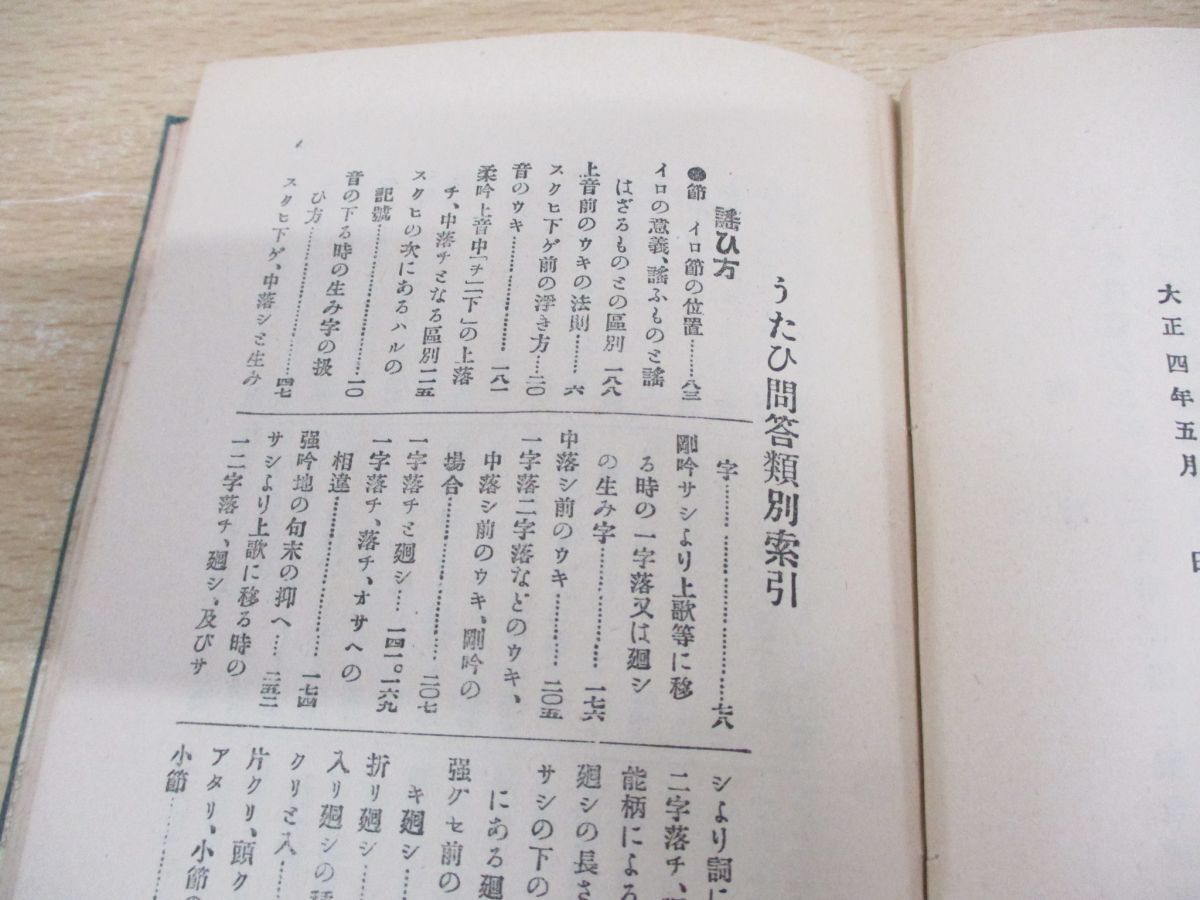 大正四年五月
うたひ問答類別索引
謠ひ方
●節 イロ節の位置……八三
イロの意義、謠ふものと謠
はざるものとの區別 一八八
上音前のウキの法則……六
スクヒ下ゲ前の浮き方…二〇
音のウキ……一八一
柔吟上音中「チ二下」の上落
チ、中落チとなる區別 二五
スクヒの次にあるハルの
記號……一〇
音の下る時の生み字の扱
ひ方……四七
スクヒ下ゲ、中落シと生み
字……七八
剛吟サシより上歌等に移
る時の一字落又は廻シ
の生み字……一七六
中落シ前のウキ……二〇五
一字落二字落などのウキ、
中落シ前のウキ、剛吟の
場合……二〇七
一字落チと廻シ……一四一。一六九
一字落チ、落チ、オサヘの
相違……一七四
强吟地の句末の抑へ……二五二
サシより上歌に移る時の
一二字落チ、廻シ、及びサ
シより詞に
二字落チ、
能柄による
廻シの長さ
サシの下の
にある廻
强グセ前の
キ廻シ
折リ廻シ
入リ廻シの
クリと入
片クリ、頭ク
アタリ、小節の
小節……